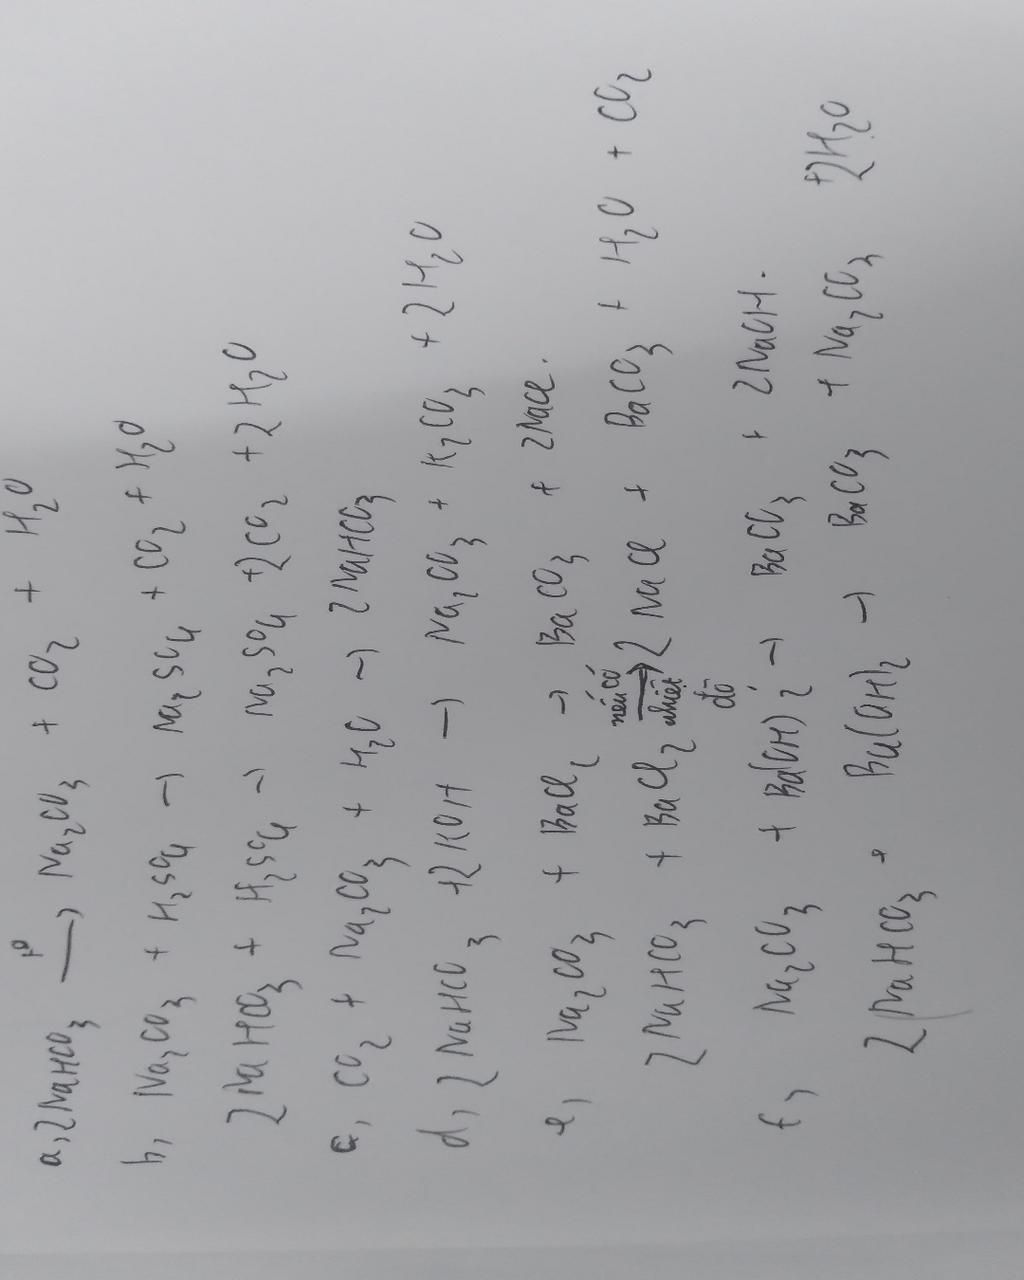 a, 2NaHCO3 —t°→ Na2CO3 + CO2 + H2O
b, Na2CO3 + H2SO4 → Na2SO4 + CO2 + H2O
2NaHCO3 + H2SO4 → Na2SO4 + 2CO2 + 2H2O
c, CO2 + Na2CO3 + H2O → 2NaHCO3
d, 2NaHCO3 + 2KOH → Na2CO3 + K2CO3 + 2H2O
e, Na2CO3 + BaCl2 → BaCO3 + 2NaCl.
2NaHCO3 + BaCl2 nếu có → nhiệt độ 2NaCl + BaCO3 + H2O + CO2
f, Na2CO3 + Ba(OH)2 → BaCO3 + 2NaOH.
2NaHCO3 + Ba(OH)2 → BaCO3 + Na2CO3 + 2H2O